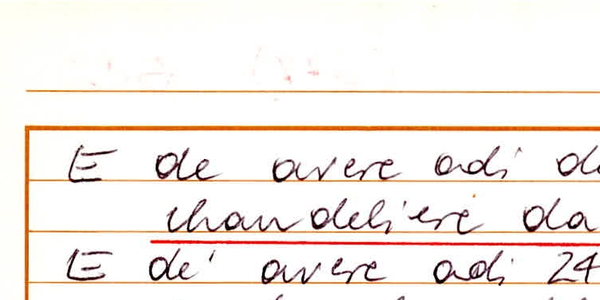 E de avere adi d
chandeliere da
E de' avere adi 24